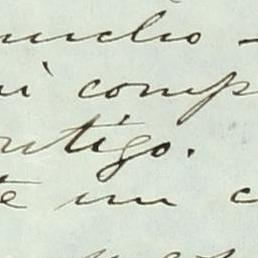 mucho -
i comp
ntigo.
te un c